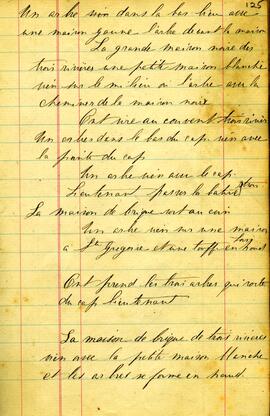 125
Un arbre sien dans la bas lieu avec
une maison jaune l'arbe devant la maison
La grande maison noire des
trois rivieres une petite maison blanche
vien sur le milieu ou l'arbre avec la
cheminer de la maison noire
Ont vire au couvent trois rivier
Un arbres dans le bas du cap vien avec
la pointe du cap
Un arbre vien avec le cap
Lieutenant passer la batture
La maison de brique sort au coin
Un arbre vien sur une maison
a St Gregoire et une touffe en haut
Ont prend les trois arbres qui sorte
du cap Lieutenant
La maison de brique de trois rivieres
vien avec la petite maison blanche
et les arbres se forme en haut